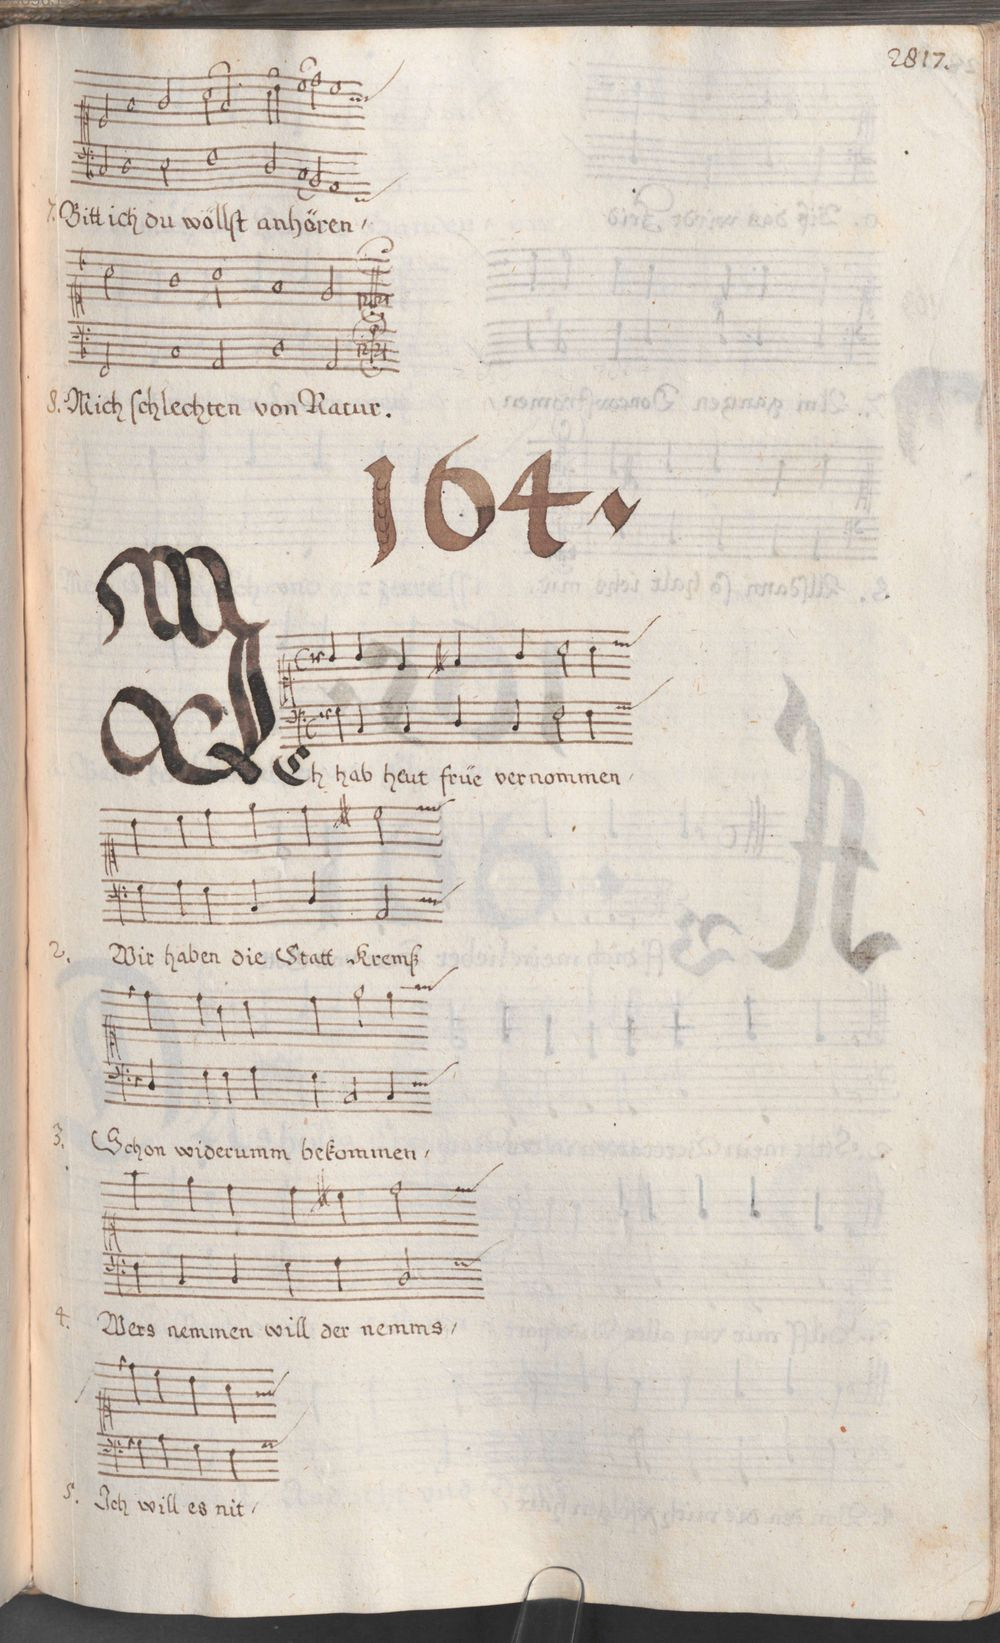 2817.
7. Bitt ich du wöllst anhören /
8. Mich schlechten von Natur.
164.
Ich hab heut früe vernommen /
2. Wir haben die Statt Kremß
3. Schon widerumm bekommen /
4. Wers nemmen will der nemms /
5. Ich will es nit /